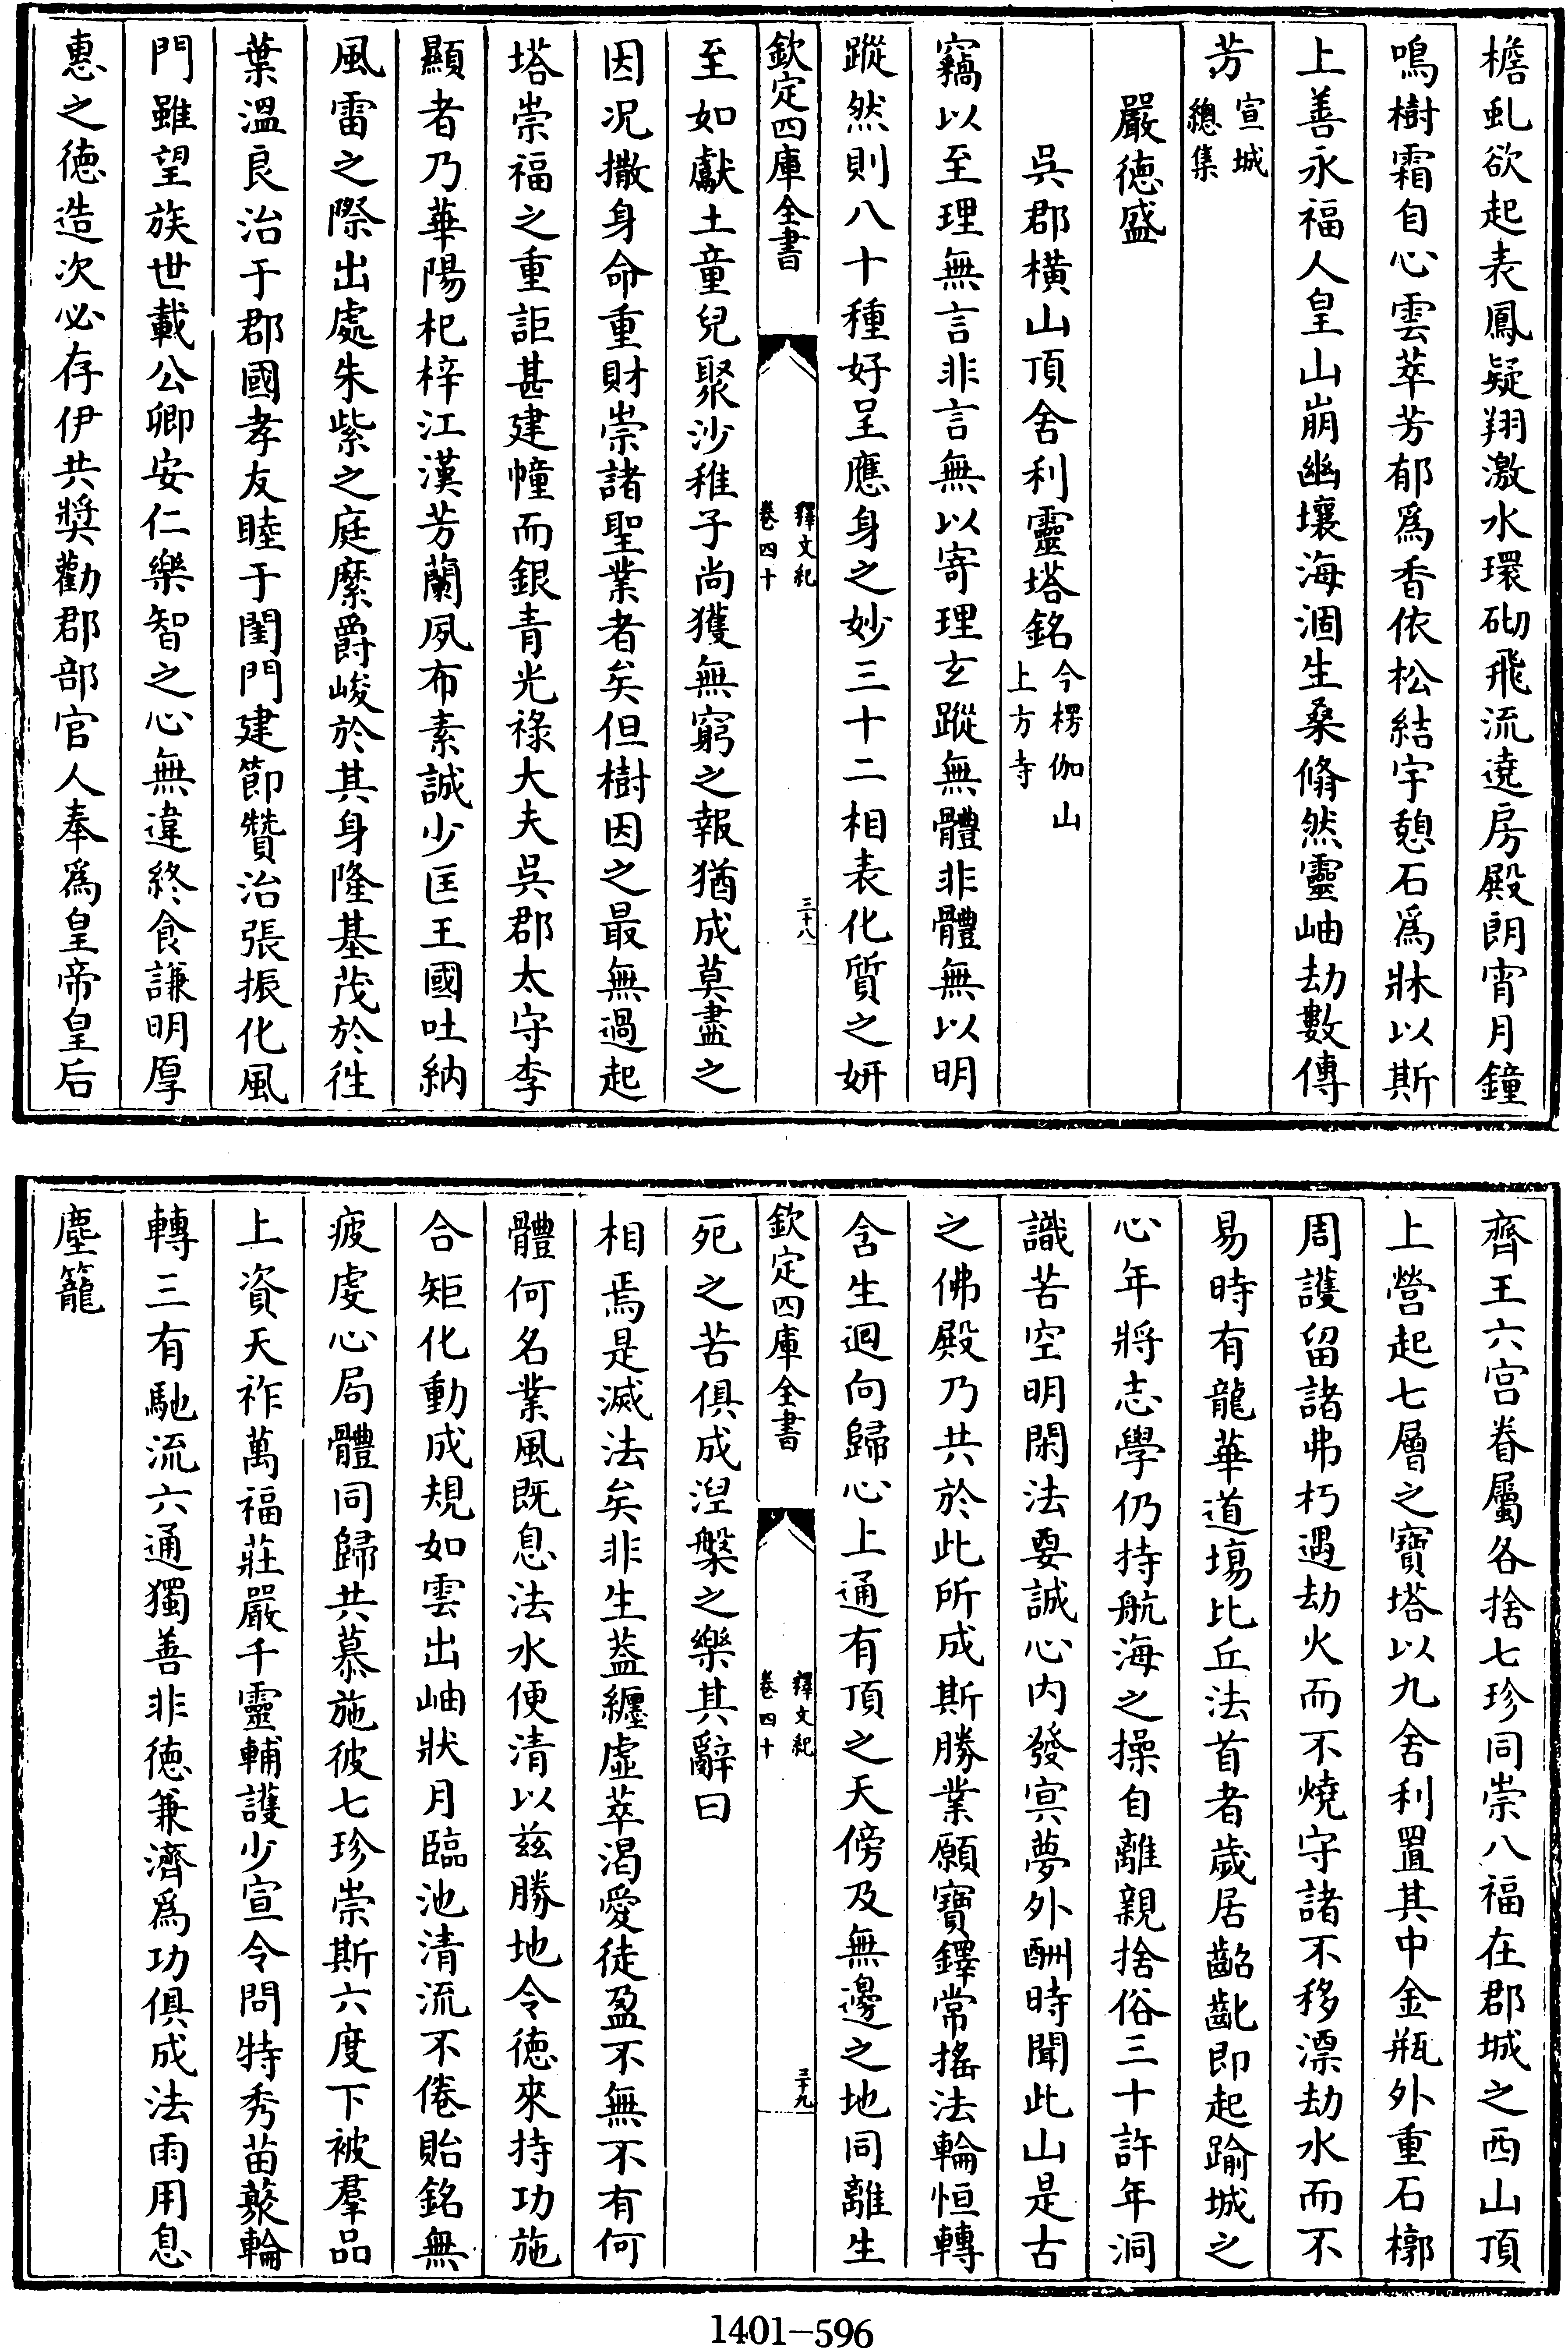 檐虬欲起表鳳疑翔激水環砌飛流遶房殿朗宵月鐘
鳴樹霜自心雲萃芳郁爲香依松結宇憩石爲牀以斯
上善永福人皇山崩幽壤海涸生桑翛然靈岫劫數傳
芳宣城總集
嚴德盛
吳郡橫山頂舍利靈塔銘今楞伽山上方寺
竊以至理無言非言無以寄理玄蹤無體非體無以明
蹤然則八十種好呈應身之妙三十二相表化質之妍
欽定四庫全書
釋文紀
卷四十
三十八
至如獻土童兒聚沙稚子尚獲無窮之報猶成莫盡之
因况撒身命重財崇諸聖業者矣但樹因之最無過起
塔崇福之重詎甚建幢而銀青光祿大夫吳郡太守李
顯者乃華陽杞梓江漢芳蘭夙布素誠少匡王國吐納
風雷之際出處朱紫之庭縻爵峻於其身隆基茂於徃
葉溫良治于郡國孝友睦于閨門建節贊治張振化風
門雖望族世載公卿安仁樂智之心無違終食謙明厚
惠之德造次必存伊共奬勸郡部官人奉爲皇帝皇后
齊王六宮眷屬各捨七珍同崇八福在郡城之西山頂
上營起七層之寶塔以九舍利置其中金瓶外重石槨
周護留諸弗朽遇劫火而不燒守諸不移漂劫水而不
易時有龍華道塲比丘法首者歲居齠齔即起踰城之
心年將志學仍持航海之操自離親捨俗三十許年洞
識苦空明閑法要誠心内發寘夢外酬時聞此山是古
之佛殿乃共於此所成斯勝業願寶鐸常搖法輪恒轉
含生迴向歸心上通有頂之天傍及無邊之地同離生
欽定四庫全書
釋文紀
卷四十
三十九
死之苦俱成湼槃之樂其辭曰
相焉是滅法矣非生葢纏虛萃渴愛徒盈不無不有何
體何名業風既息法水便清以兹勝地令德來持功施
合矩化動成規如雲出岫狀月臨池清流不倦貽銘無
疲虔心局體同歸共慕施彼七珍崇斯六度下被羣品
上資天祚萬福莊嚴千靈輔護少宣令問特秀苗裔輪
轉三有馳流六通獨善非德兼濟爲功俱成法雨用息
塵籠
1401-596